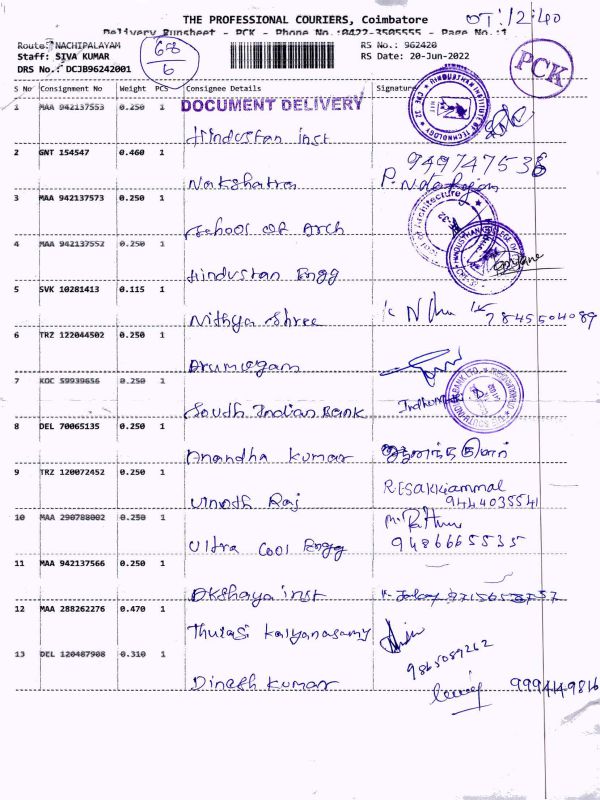 THE PROFESSIONAL COURIERS, Coimbatore
OT:12:40
Delivery Runsheet - PCK - Phone No.:0422-3505555 - Page No.:1
Route: NACHIPALAYAM
RS No.: 962420
Staff: SIVA KUMAR
RS Date: 20-Jun-2022
DRS No.: DCJB96242001
68
6
PCK
S No Consignment No Weight PCS Consignee Details Signature
DOCUMENT DELIVERY
1 MAA 942137553 0.250 1
Hindustan inst
2 GNT 154547 0.460 1
Nakshatra
3 MAA 942137573 0.250 1
School OF Arch
4 MAA 942137552 0.250 1
Hindustan Engg
5 SVK 10281413 0.115 1
Nithya Shree 7845504089
6 TRZ 122044502 0.250 1
Arumugam
7 KOC 59939656 0.250 1
South Indian Bank
8 DEL 70065135 0.250 1
Anandha Kumar
9 TRZ 120072452 0.250 1
Vinoth Raj RESAKKIAMMAL
9444035541
10 MAA 290788002 0.250 1
Ultra Cool Engg 9486665535
11 MAA 942137566 0.250 1
Akshaya inst
12 MAA 288262276 0.470 1
Thulasi Kalyanasamy
9865089262
13 DEL 120487908 0.310 1
Dinesh Kumar 9994149816